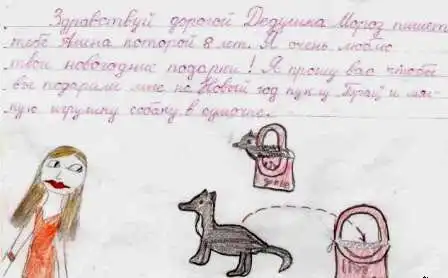 Здравствуй дорогой Дедушка Мороз пишет
тебе Алина которой 8 лет. Я очень люблю
твои новогодние подарки! Я прошу вас чтобы
вы подарили мне на Новый год куклу и мяг-
кую игрушку собаку в сумочке.